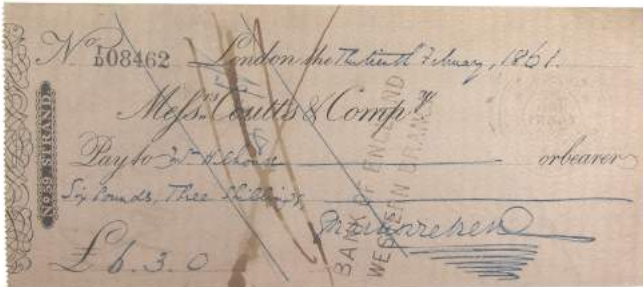 No I/D 08462 London the Thirteenth February, 1861.
Messrs Coutts & Compy
Pay to Wm or bearer
Six Pounds, Three Shillings,
£6. 3. 0
No 59 STRAND.
BANK OF ENGLAND
WESTERN BRANCH